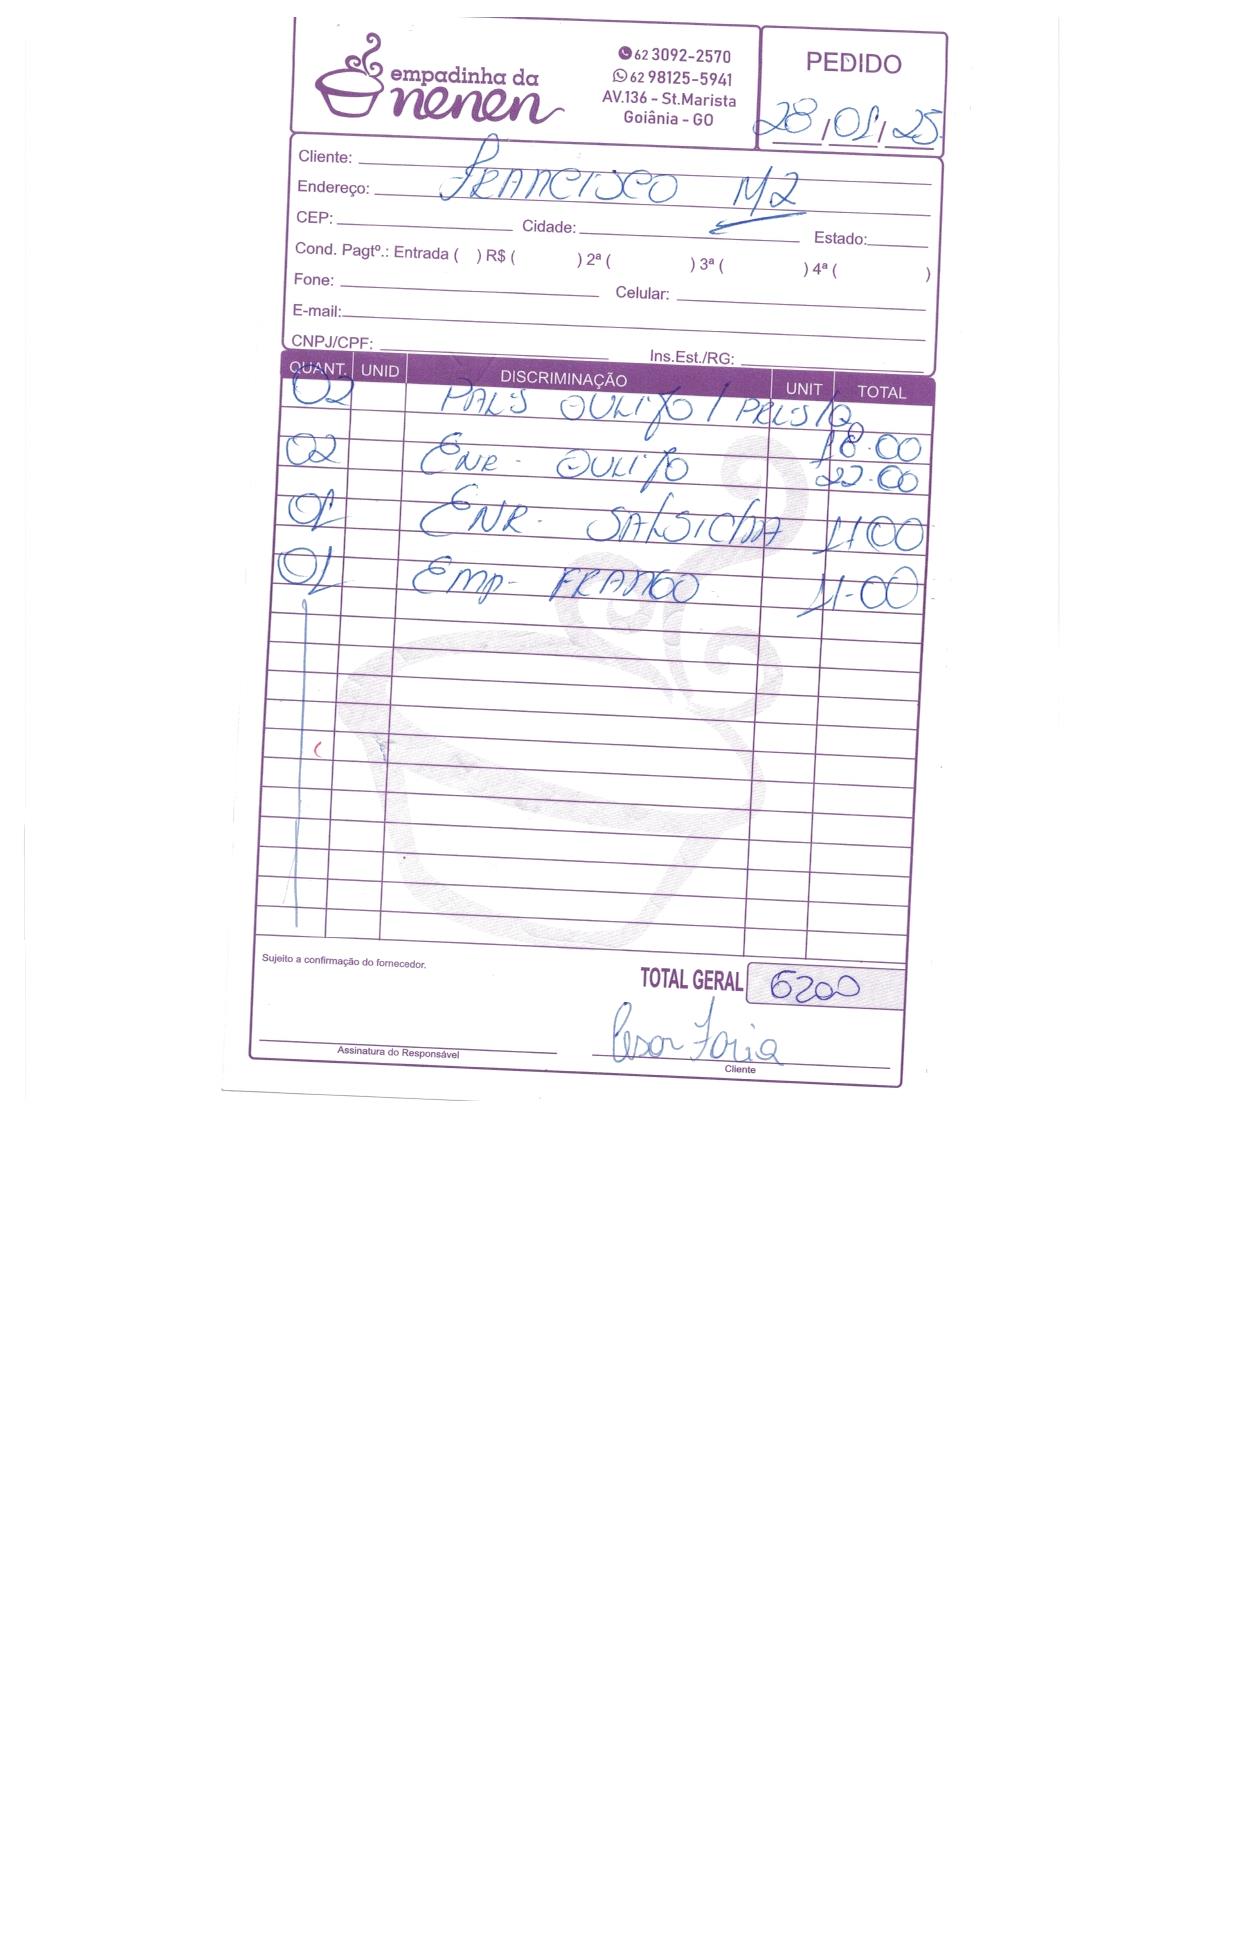 empadinha da
nenen
62 3092-2570
62 98125-5941
AV.136 - St.Marista
Goiânia - GO
PEDIDO
28/01/25
Cliente:
Endereço: FRANCISCO M2
CEP: Cidade: Estado:
Cond. Pagtº.: Entrada ( ) R$ ( ) 2ª ( ) 3ª ( ) 4ª ( )
Fone: Celular:
E-mail:
CNPJ/CPF: Ins.Est./RG:
QUANT. UNID DISCRIMINAÇÃO UNIT TOTAL
02
18.00
02 ENR - 22.00
01 ENR - SALSICHA 11.00
01 EMP - FRANGO 11-00
Sujeito a confirmação do fornecedor.
TOTAL GERAL 6200
Cesar Faria
Assinatura do Responsável
Cliente